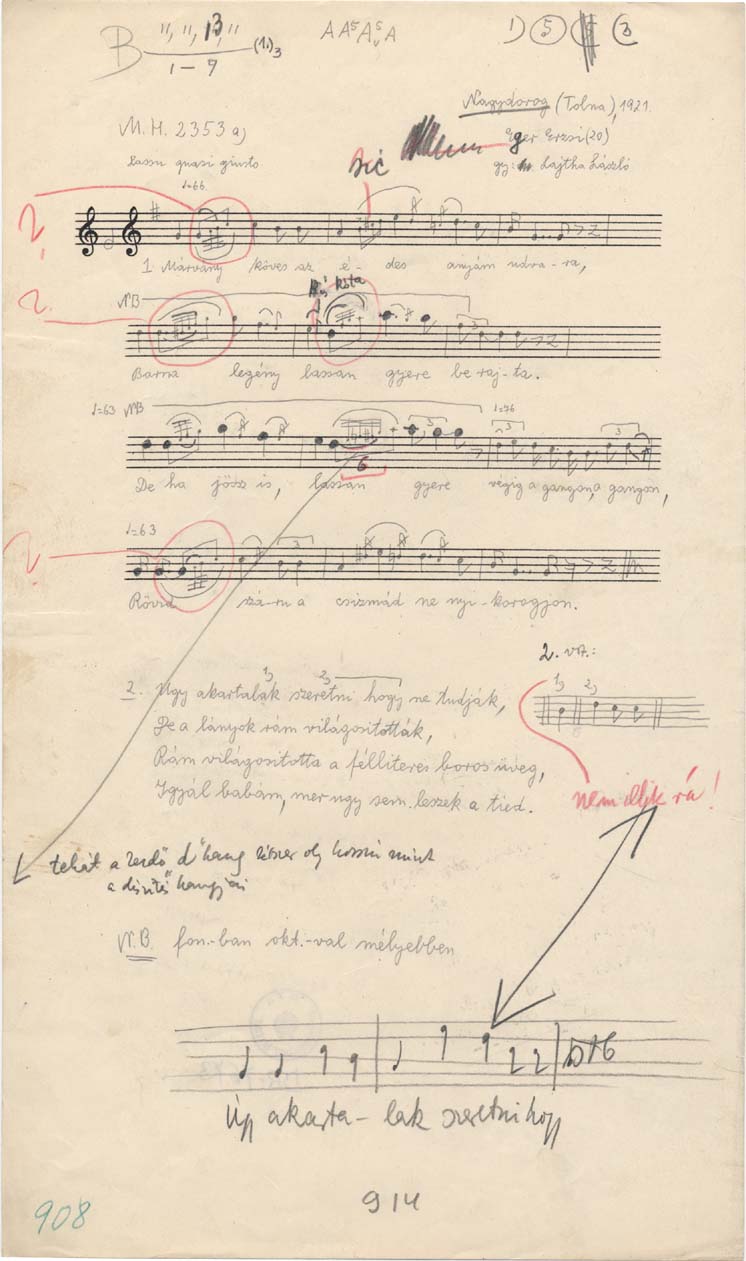 B ", ", 13, " (1.)3
1 – 9
A A⁵ A⁵ᵥ A
1) 5 3
Nagydorog (Tolna), 1921.
M. H. 2353 a)
Eger Erzsi (20)
lassu quasi giusto
sić
gy: Lajtha László
♩=66.
?
1. Márvány köves az é- des anyám udva-ra,
?
NB
kis kóta
Barna legény lassan gyere be raj-ta.
♩=63 NB ♩=76
3 3 3
6
De ha jössz is, lassan gyere végig a gangon, a gangon,
♩=63
?
3
Rövid szá-ru a csizmád ne nyi-korogjon.
2. vsz.:
1) 2)
1) 2)
2. Ugy akartalak szeretni hogy ne tudják,
De a lányok rám világositották,
Rám világositotta a félliteres boros üveg,
Igyál babám, mer ugy sem leszek a tied.
nem illik rá!
tehát a kezdő d" hang kétszer oly hosszú mint
a díszítő hangjai
N.B. fon.-ban okt.-val mélyebben
Úgy akarta – lak szeretni hogy
914
908